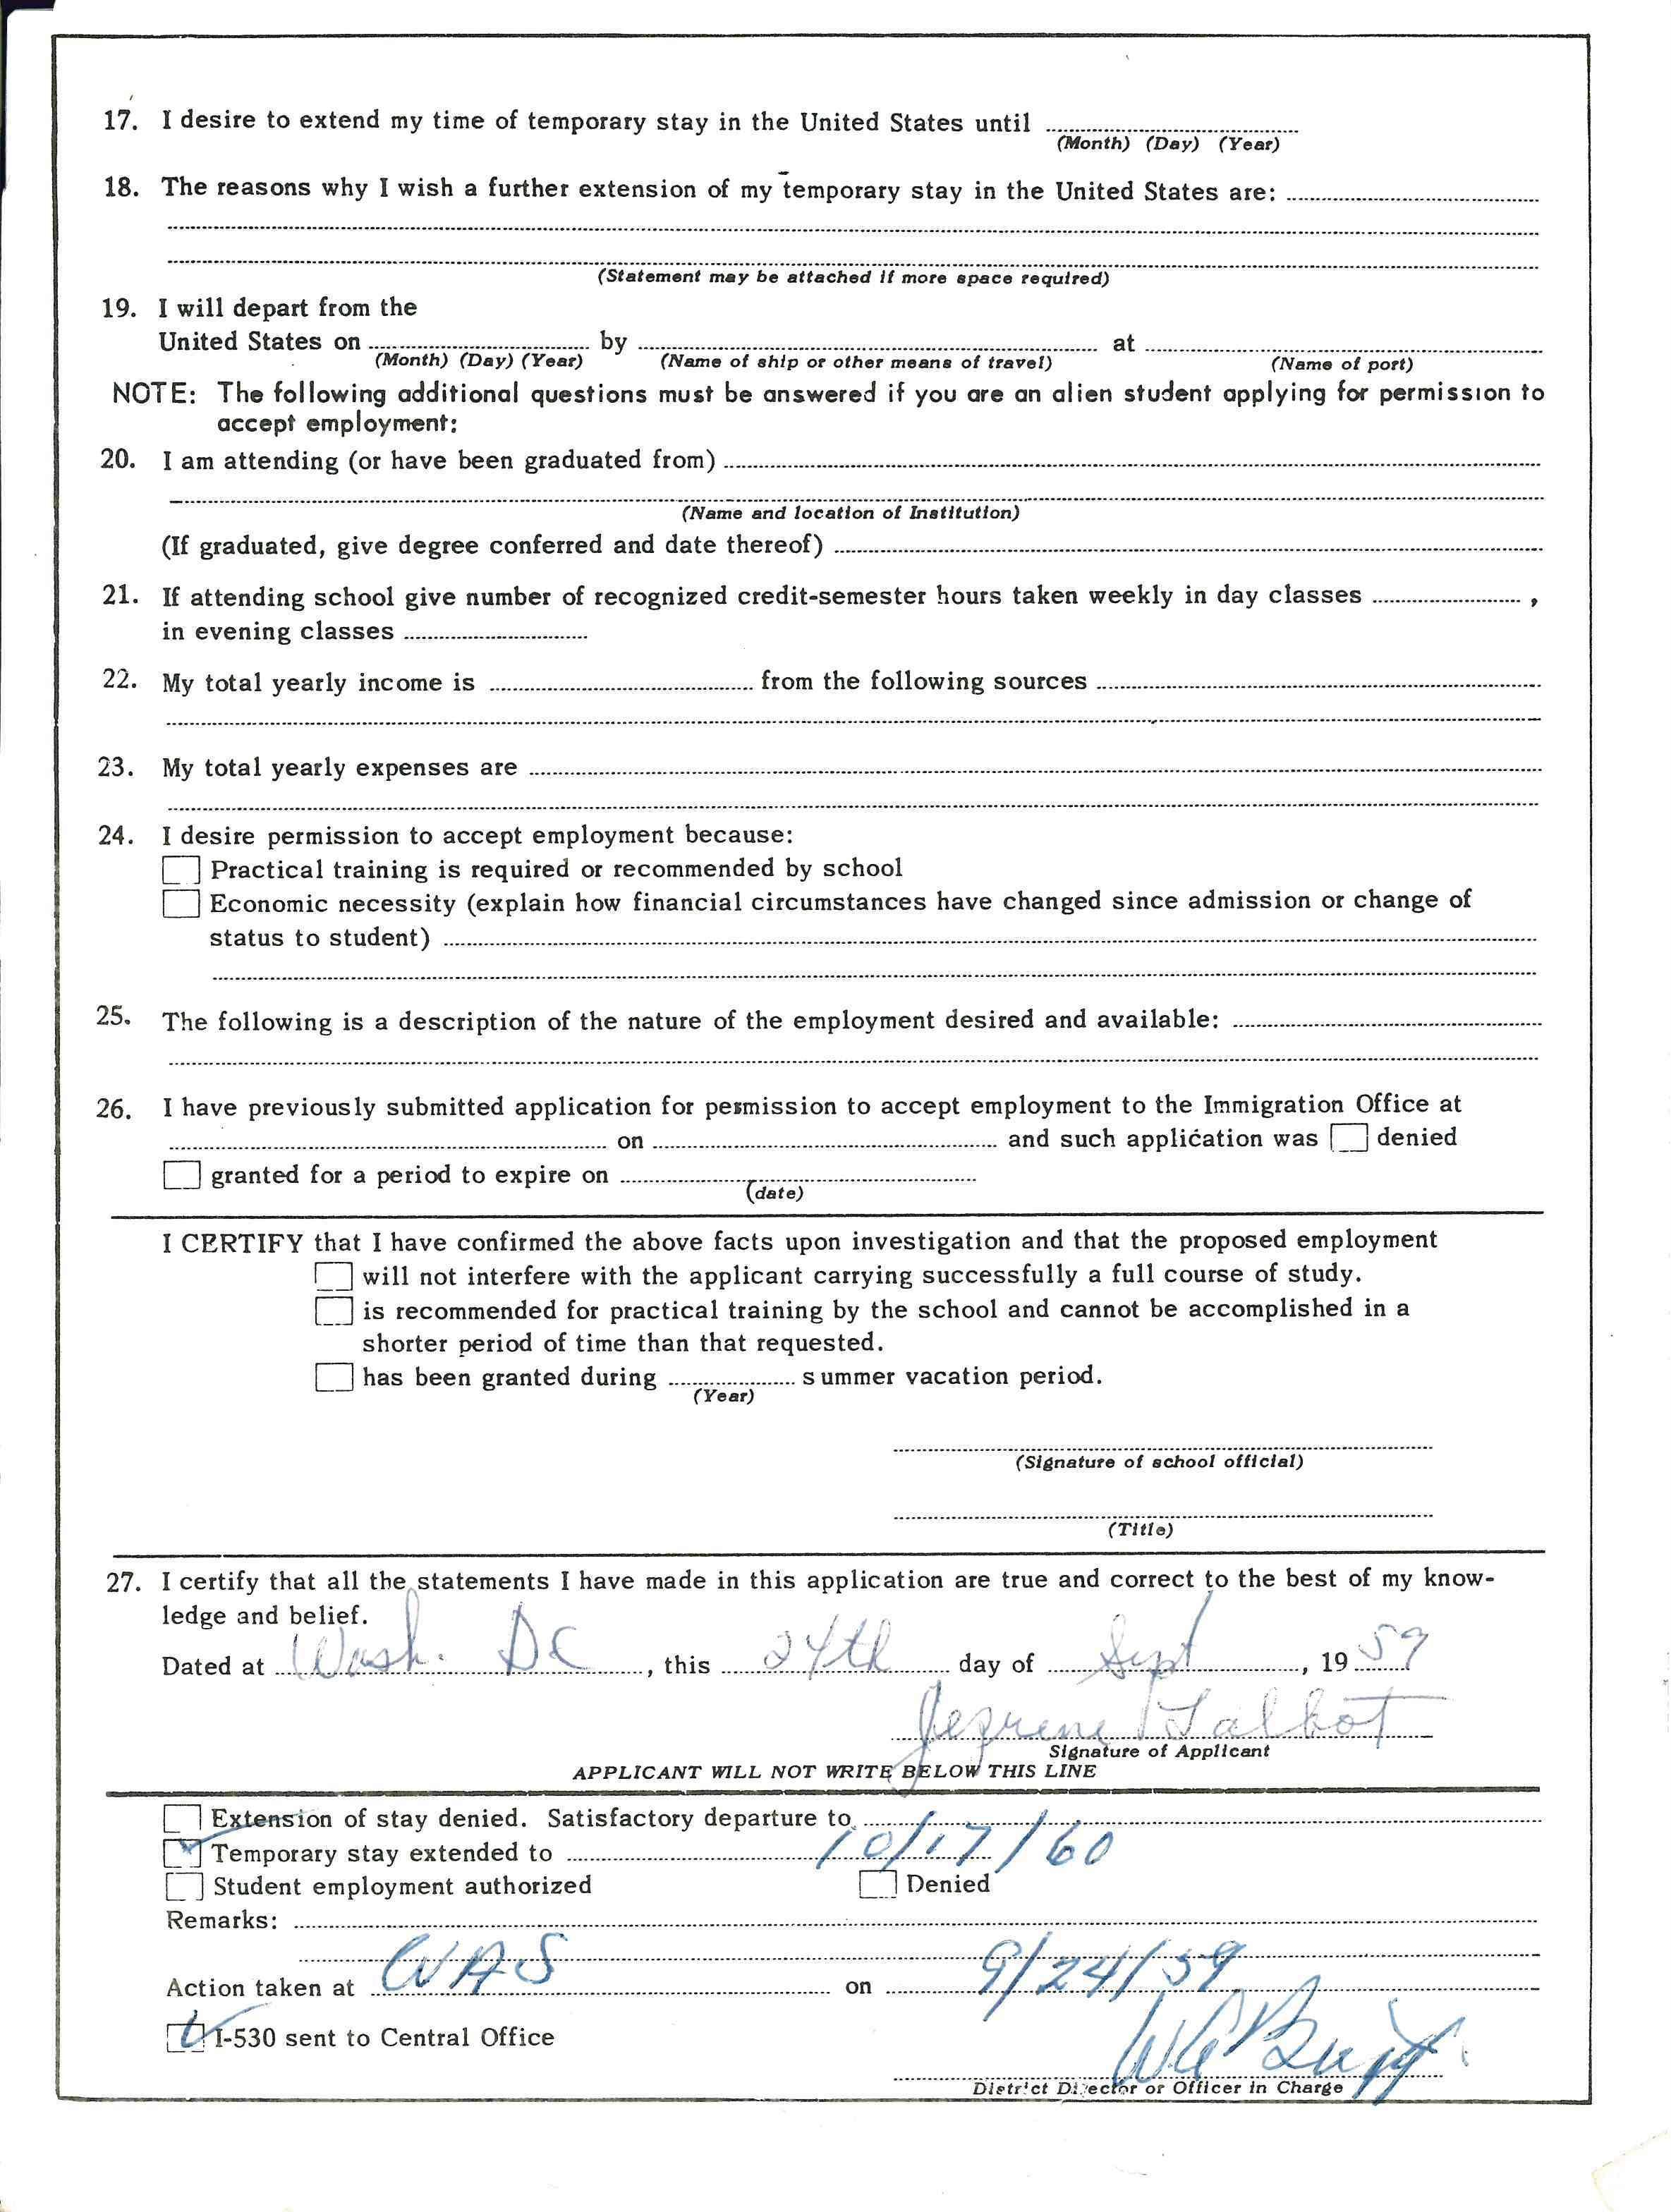 17. I desire to extend my time of temporary stay in the United States until
(Month) (Day) (Year)
18. The reasons why I wish a further extension of my temporary stay in the United States are:
(Statement may be attached if more space required)
19. I will depart from the
United States on by at
(Month) (Day) (Year) (Name of ship or other means of travel) (Name of port)
NOTE: The following additional questions must be answered if you are an alien student applying for permission to
accept employment:
20. I am attending (or have been graduated from)
(Name and location of Institution)
(If graduated, give degree conferred and date thereof)
21. If attending school give number of recognized credit-semester hours taken weekly in day classes ,
in evening classes
22. My total yearly income is from the following sources
23. My total yearly expenses are
24. I desire permission to accept employment because:
Practical training is required or recommended by school
Economic necessity (explain how financial circumstances have changed since admission or change of
status to student)
25. The following is a description of the nature of the employment desired and available:
26. I have previously submitted application for permission to accept employment to the Immigration Office at
on and such application was denied
granted for a period to expire on
(date)
I CERTIFY that I have confirmed the above facts upon investigation and that the proposed employment
will not interfere with the applicant carrying successfully a full course of study.
is recommended for practical training by the school and cannot be accomplished in a
shorter period of time than that requested.
has been granted during summer vacation period.
(Year)
(Signature of school official)
(Title)
27. I certify that all the statements I have made in this application are true and correct to the best of my know-
ledge and belief.
Dated at Wash. DC, this 24th day of Sept, 1959
Talbot
Signature of Applicant
APPLICANT WILL NOT WRITE BELOW THIS LINE
Extension of stay denied. Satisfactory departure to
Temporary stay extended to 10/17/60
Student employment authorized Denied
Remarks:
Action taken at WAS on 9/24/59
I-530 sent to Central Office
District Director or Officer in Charge